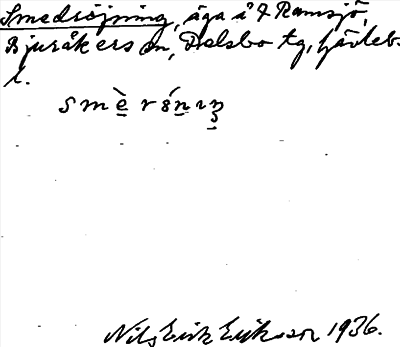 Smedsröjning, äga å f Ramsjö,
Bjuråkers sn, Delsbo tg, Gävleb.
l.
smèrönıŋ
Nils Erik Eriksson 1936.